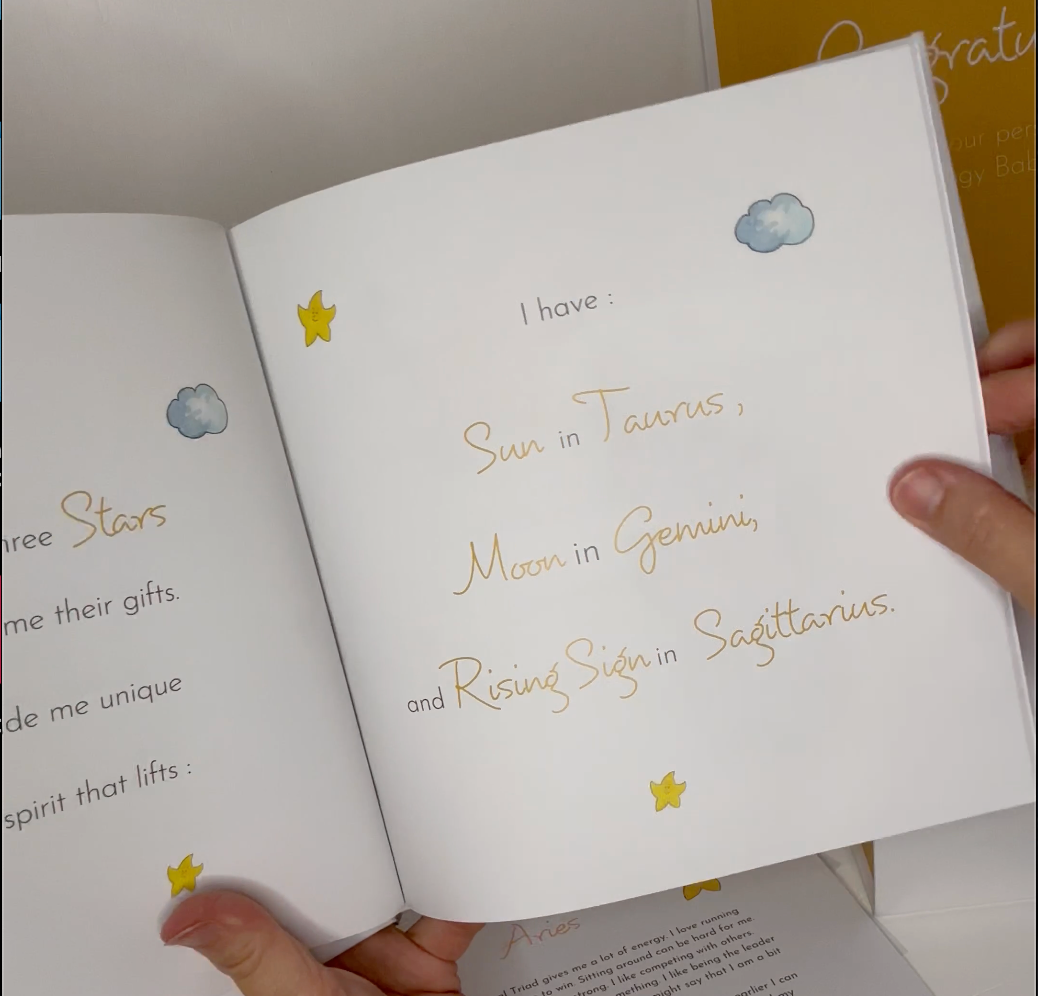 hree Stars
me their gifts.
de me unique
spirit that lifts :
I have :
Sun in Taurus,
Moon in Gemini,
and Rising Sign in Sagittarius.
our per
gy Bab
Aries
Triad gives me a lot of energy. I love running
to win. Sitting around can be hard for me.
trong. I like competing with others.
mething. I like being the leader
might say that I am a bit
earlier I can